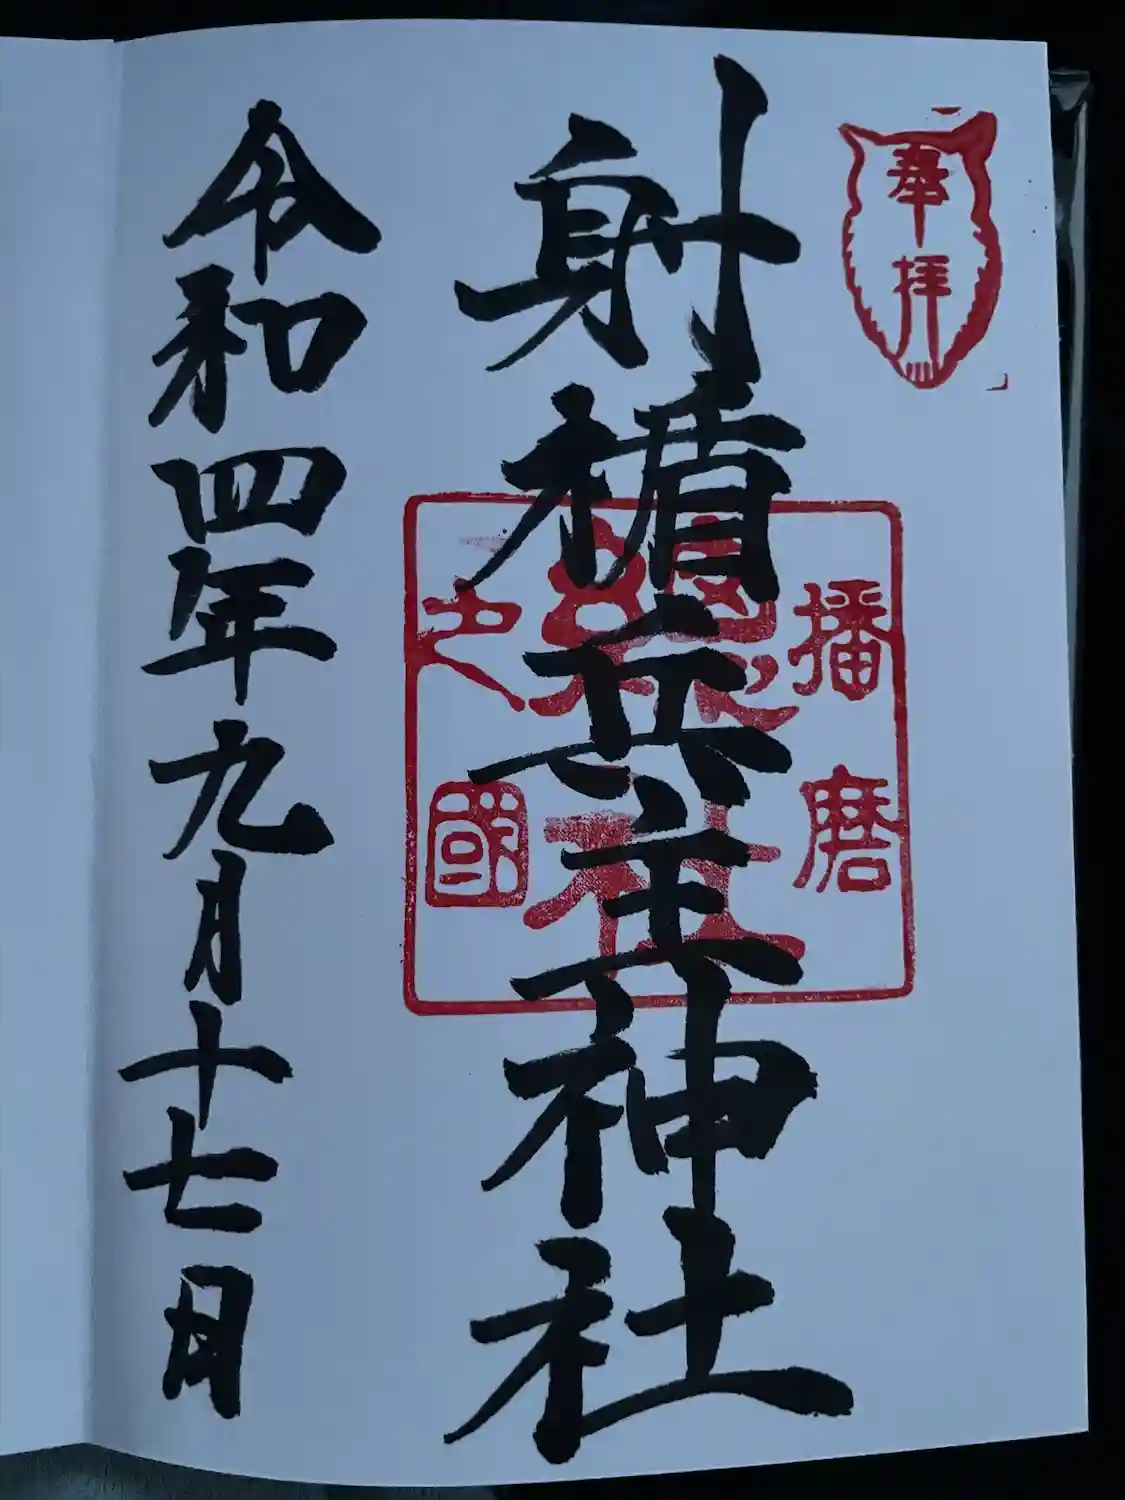 奉拝
射楯兵主神社
播磨
総社
之国
令和四年九月十七日